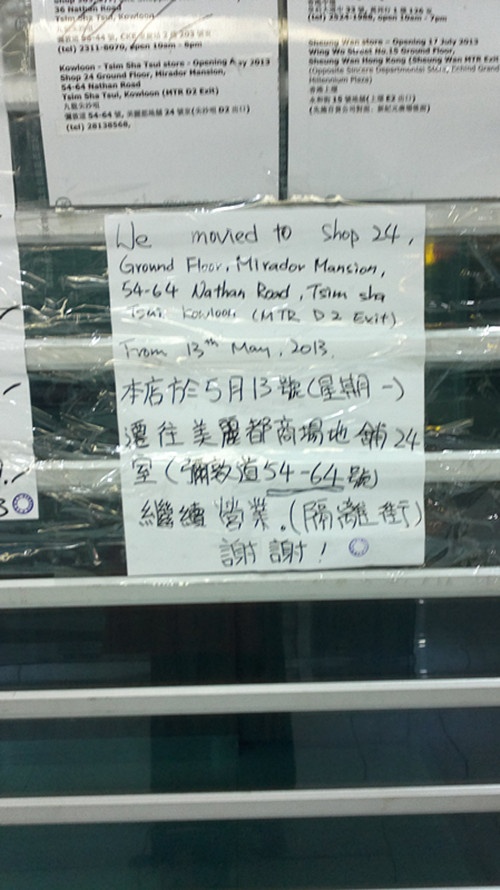 36 Nathan Road
Tsim Sha Tsui, Kowloon
(tel) 2311-8070, open 10am - 8pm
Kowloon - Tsim Sha Tsui store - Opening May 2013
Shop 24 Ground Floor, Mirador Mansion,
54-64 Nathan Road
Tsim Sha Tsui, Kowloon (MTR D2 Exit)
九龍尖沙咀
(tel) 28138568,
open 10am - 7pm
Sheung Wan store - Opening 17 July 2013
Wing Wo Street No.15 Ground Floor,
Sheung Wan Hong Kong (Sheung Wan MTR Exit
(Opposite Sincere Departmental Store, Behind Grand
Millennium Plaza)
香港上環
We movied to Shop 24,
Ground Floor, Mirador Mansion,
54-64 Nathan Road, Tsim sha
Tsui, Kowloon (MTR D2 Exit)
From 13th May, 2013.
本店於5月13號(星期一)
遷往美麗都商場地舖24
室(彌敦道54-64號)
繼續營業.(隔離街)
謝謝!